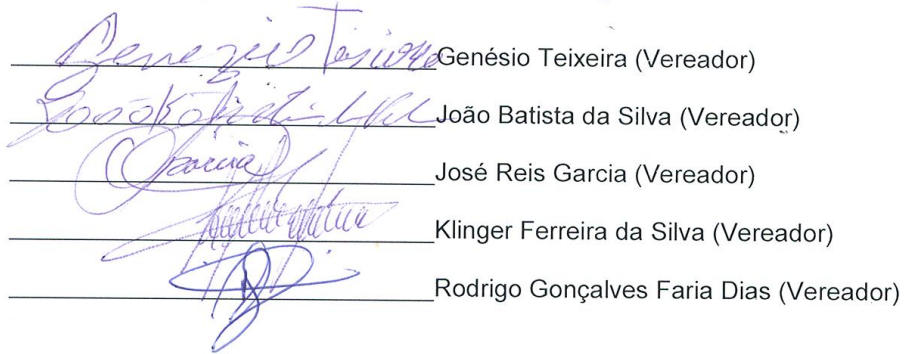 Genezio Teixeira Genésio Teixeira (Vereador)
João Batista da Silva (Vereador)
Garcia José Reis Garcia (Vereador)
Klinger Ferreira da Silva (Vereador)
Rodrigo Gonçalves Faria Dias (Vereador)